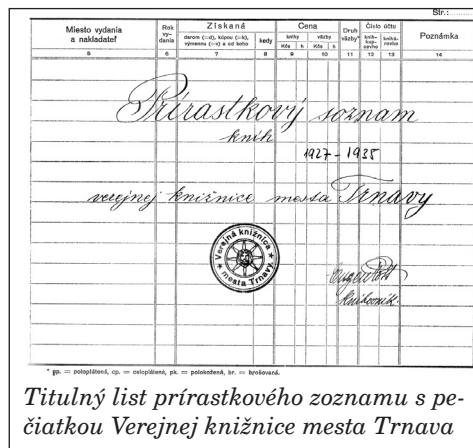 Str.:
Miesto vydania a nakladateľ
Rok vydania
Získaná
darom (=d), kúpou (=k), výmenou (=v) a od koho
kedy
Cena
knihy
väzby
Kčs h Kčs h
Druh väzby*
Číslo účtu
kníhkupcovho
knihárovho
Poznámka
5 6 7 8 9 10 11 12 13 14
Prírastkový soznam
kníh
1927 - 1935
verejnej knižnice mesta Trnavy
Verejná knižnica ★ mesta Trnavy ★
knihovník.
* pp. = poloplátená, cp. = celoplátená, pk. = polokožená, br. = brošovaná.
Titulný list prírastkového zoznamu s pe-
čiatkou Verejnej knižnice mesta Trnava